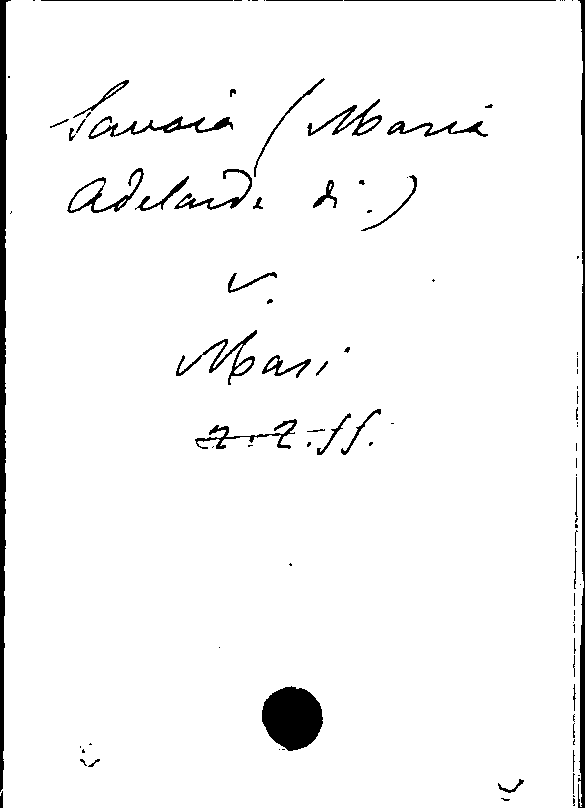 Savoia (Maria
Adelaide di.)
v.
Masi